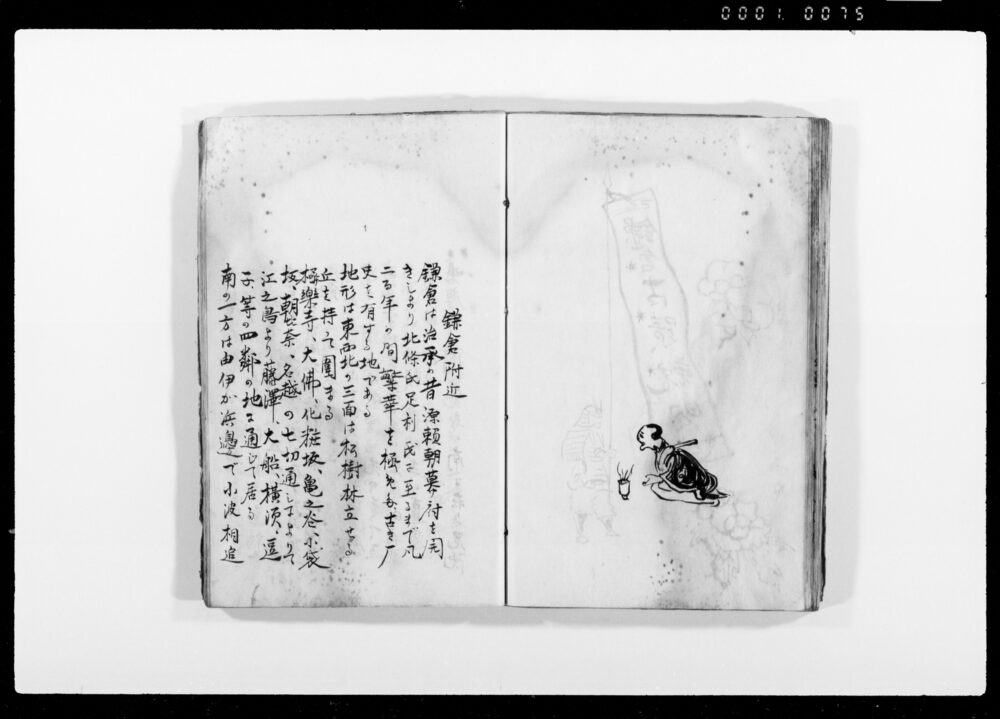 0001. 0075
鎌倉附近
鎌倉は治承の昔源頼朝幕府を開
きしより北條氏足利氏に至るまで凡
二百年の間繁華を極めた古き
史を有する地である
地形は東西北の三面は松樹林立せる
丘を持て圍まる
極樂寺、大佛、化粧坂、亀之谷、小袋
坂、朝比奈、名越の七切通しによりて
江之島より藤澤、大船、横須、逗
子、等の四鄰の地に通じて居る
南の一方は由伊が浜邊で小波相追